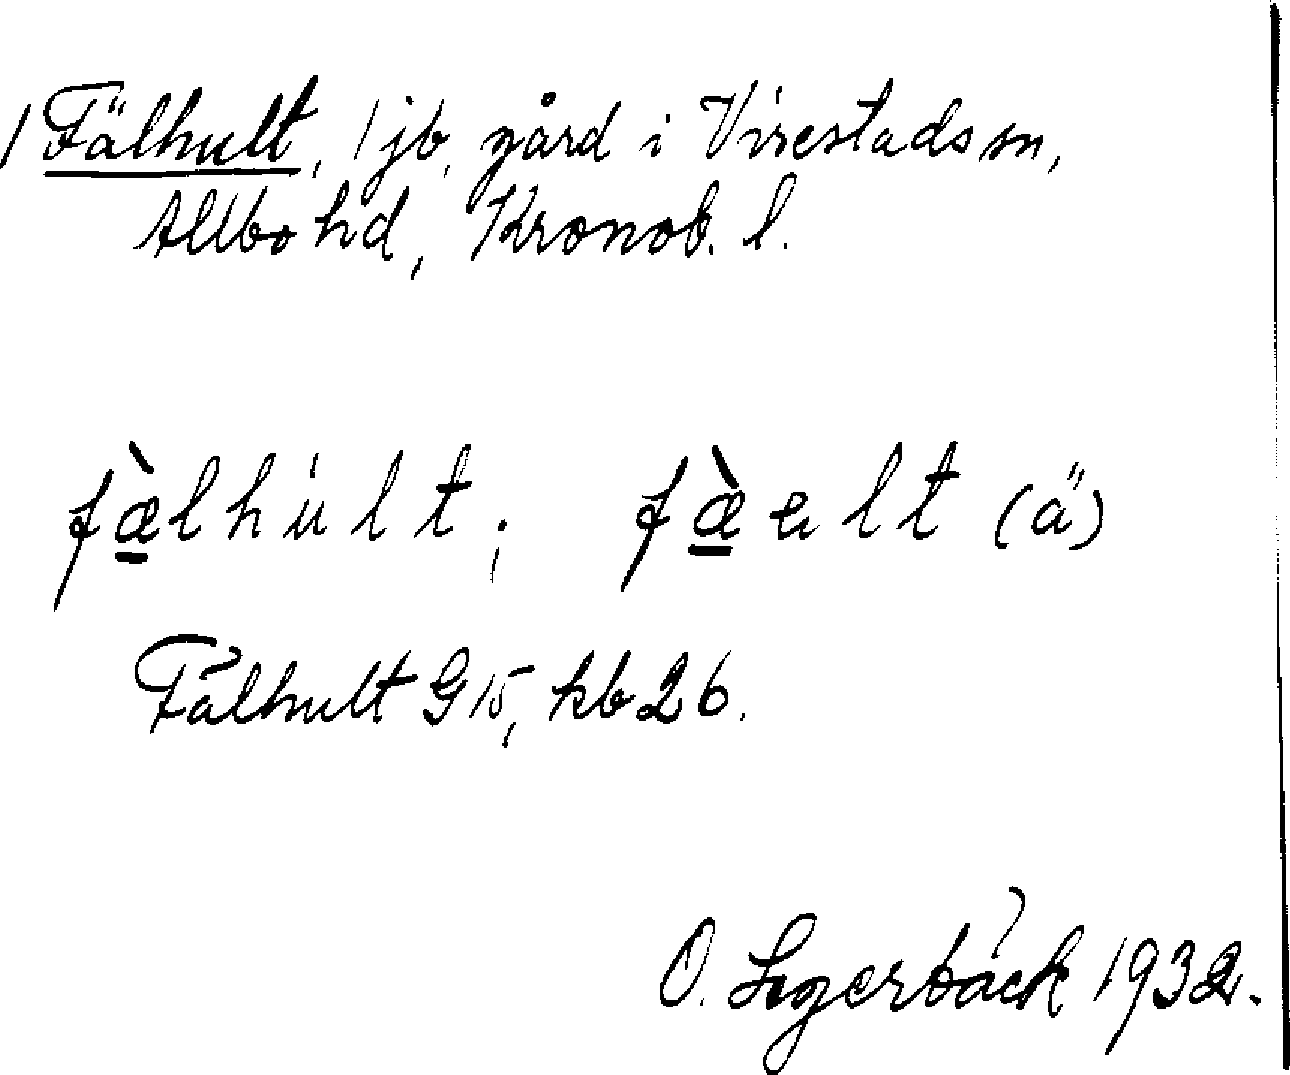 1 Fälhult, 1 jb, gård i Virestads sn,
Allbo hd, Kronob. l.
fæ̱̀lhu̇lt; fæ̱̀ elt (ä)
Fälhult G 15, kb 26.
O. Segerbäck 1932.